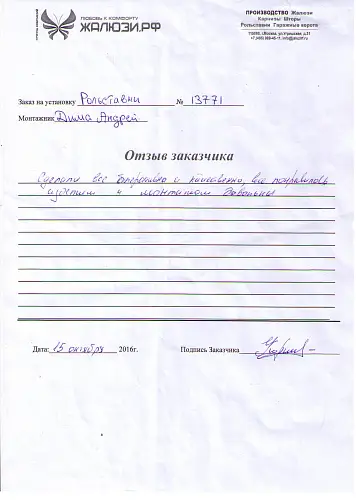 ЛЮБОВЬ К КОМФОРТУ
ЖАЛЮЗИ.РФ
ПРОИЗВОДСТВО Жалюзи
Карнизы Шторы
Рольставни Гаражные ворота
Заказ на установку Рольставни № 13771
Монтажник Дима Андрей
Отзыв заказчика
Сделали все оперативно и качественно, все понравилось
изделием и монтажом довольны
Дата: 15 октября 2016г. Подпись Заказчика